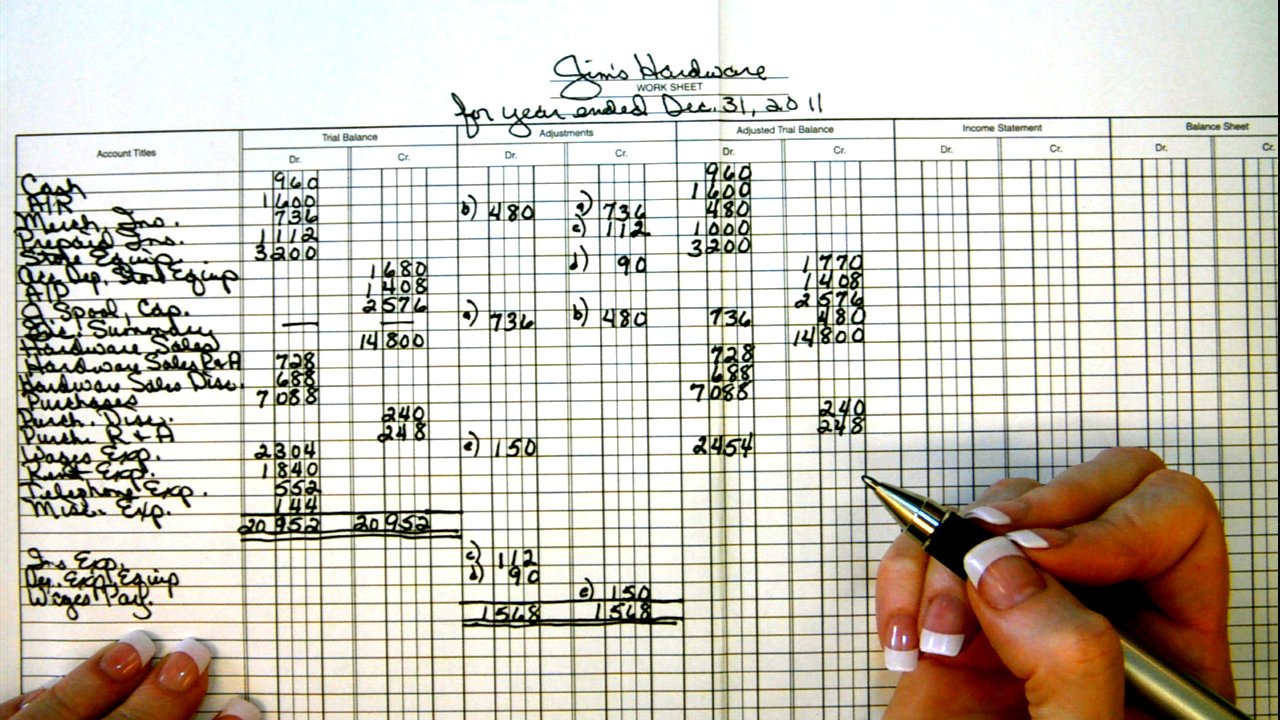 Jim's Hardware
WORK SHEET
for year ended Dec. 31, 2011
Account Titles Trial Balance Adjustments Adjusted Trial Balance Income Statement Balance Sheet
Dr. Cr. Dr. Cr. Dr. Cr. Dr. Cr. Dr. Cr.
Cash 960 960
A/R 1600 1600
Merch. Ins. 736 b) 480 a) 736 480
Prepaid Ins. 1112 c) 112 1000
Store Equip. 3200 3200
Acc. Dep. Store Equip 1680 d) 90 1770
A/P 1408 1408
O. Spool, Cap. 2576 2576
Summary — — a) 736 b) 480 736 480
Hardware Sales 14800 14800
Hardware Sales R&A 728 728
Hardware Sales Disc. 688 688
Purchases 7088 7088
Purch. Disc. 240 240
Purch. R & A 248 248
Wages Exp. 2304 e) 150 2454
Rent Exp. 1840
Telephone Exp. 552
Misc. Exp. 144
20952 20952
Ins Exp. c) 112
Dep. Exp. Equip d) 90
Wages Pay. e) 150
1568 1568